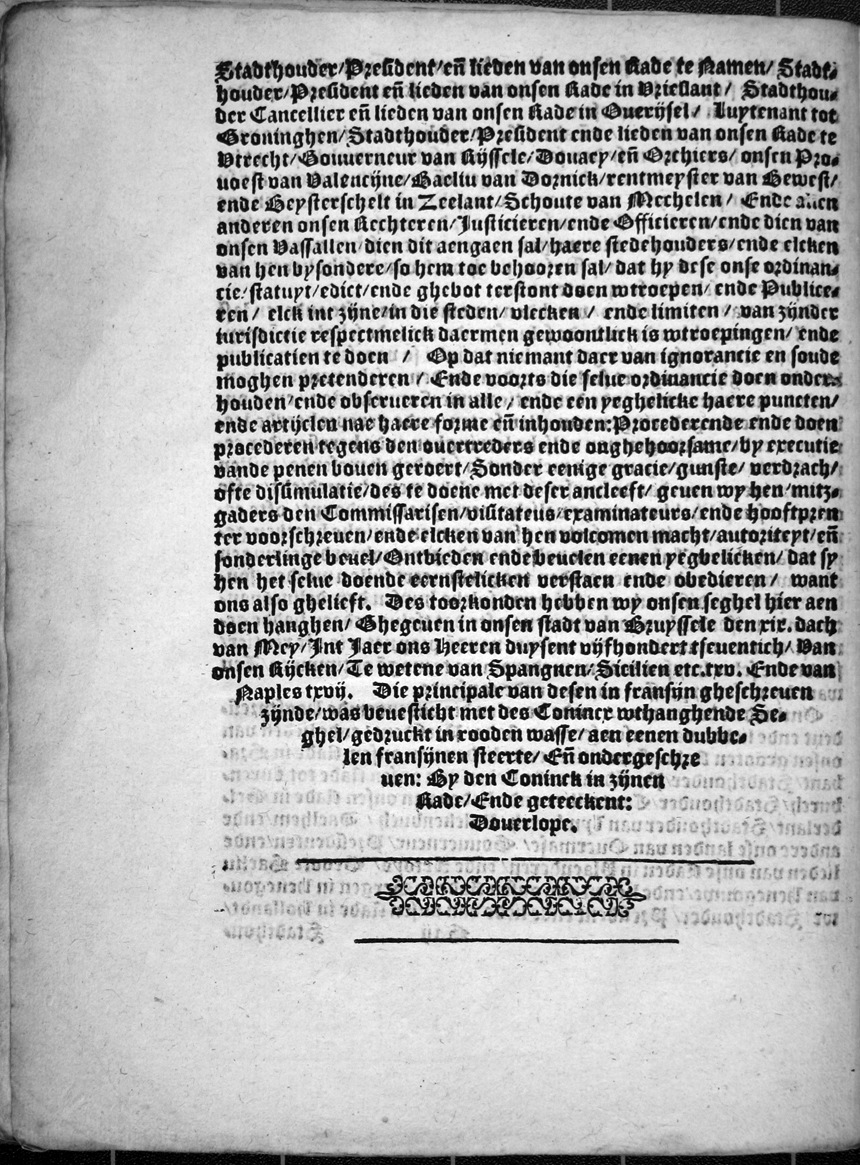 Stadthouder/President/en̄ lieden van onsen Rade te Namen/ Stadt-
houder/President en̄ lieden van onsen Rade in Vrieslant/ Stadthou-
der Cancellier en̄ lieden van onsen Rade in Ouerijsel/ Luytenant tot
Groninghen/Stadthouder/President ende lieden van onsen Rade te
Vtrecht/Gouuerneur van Rijssele/Douaey/en̄ Orchiers/ onsen Pro-
uoest van Valencijne/Bailiu van Dornick/rentmeyster van Bewest/
ende Beysterschelt in Zeelant/Schoute van Mechelen/ Ende allen
anderen onsen Rechteren/Justicieren/ende Officieren/ende dien van
onsen Vassallen/dien dit aengaen sal/haere stedehouders/ende elcken
van hen bysondere/so hem toe behooren sal/ dat hy dese onse ordinan-
cie/statuyt/edict/ende ghebot terstont doen wtroepen/ ende Publice-
ren/ elck int zijne/in die steden/ vlecken / ende limiten / van zijnder
iurisdictie respectmelick daermen gewoontlick is wtroepingen/ ende
publicatien te doen / Op dat niemant daer van ignorancie en soude
moghen pretenderen / Ende voorts die selue ordinancie doen onder-
houden/ende obserueren in alle / ende een yeghelicke haere puncten/
ende artijclen nae haere forme en̄ inhouden:Procederende ende doen
procederen tegens den ouertreders ende onghehoorsame/by executie
vande penen bouen geroert/Sonder eenige gracie/gunste/ verdrach/
ofte dissimulatie/des te doene met deser ancleeft/ geuen wy hen/mitz-
gaders den Commissarisen/visitateus/examinateurs/ende hooftpren
ter voorschreuen/ende elcken van hen volcomen macht/autoriteyt/en̄
sonderlinge beuel/Ontbieden ende beuelen eenen yegbelicken/ dat sy
hen het selue doende eernstelicken verstaen ende obedieren/ want
ons also ghelieft. Des toorkonden hebben wy onsen seghel hier aen
doen hanghen/ Ghegeuen in onsen stadt van Bruyssele den xix. dach
van Mey/Int Jaer ons Heeren duysent vijfhondert tseuentich/ Van
onsen Rijcken/Te wetene van Spangnen/Sicilien etc.xxv. Ende van
Naples xxvij. Die principale van desen in fransijn gheschreuen
zijnde/was beuesticht met des Conincx wthanghende Se-
ghel/gedruckt in rooden wasse/ aen eenen dubbe-
len fransijnen steerte/ En̄ ondergeschre
uen: By den Coninck in zijnen
Rade/Ende geteeckent:
Douerlope.